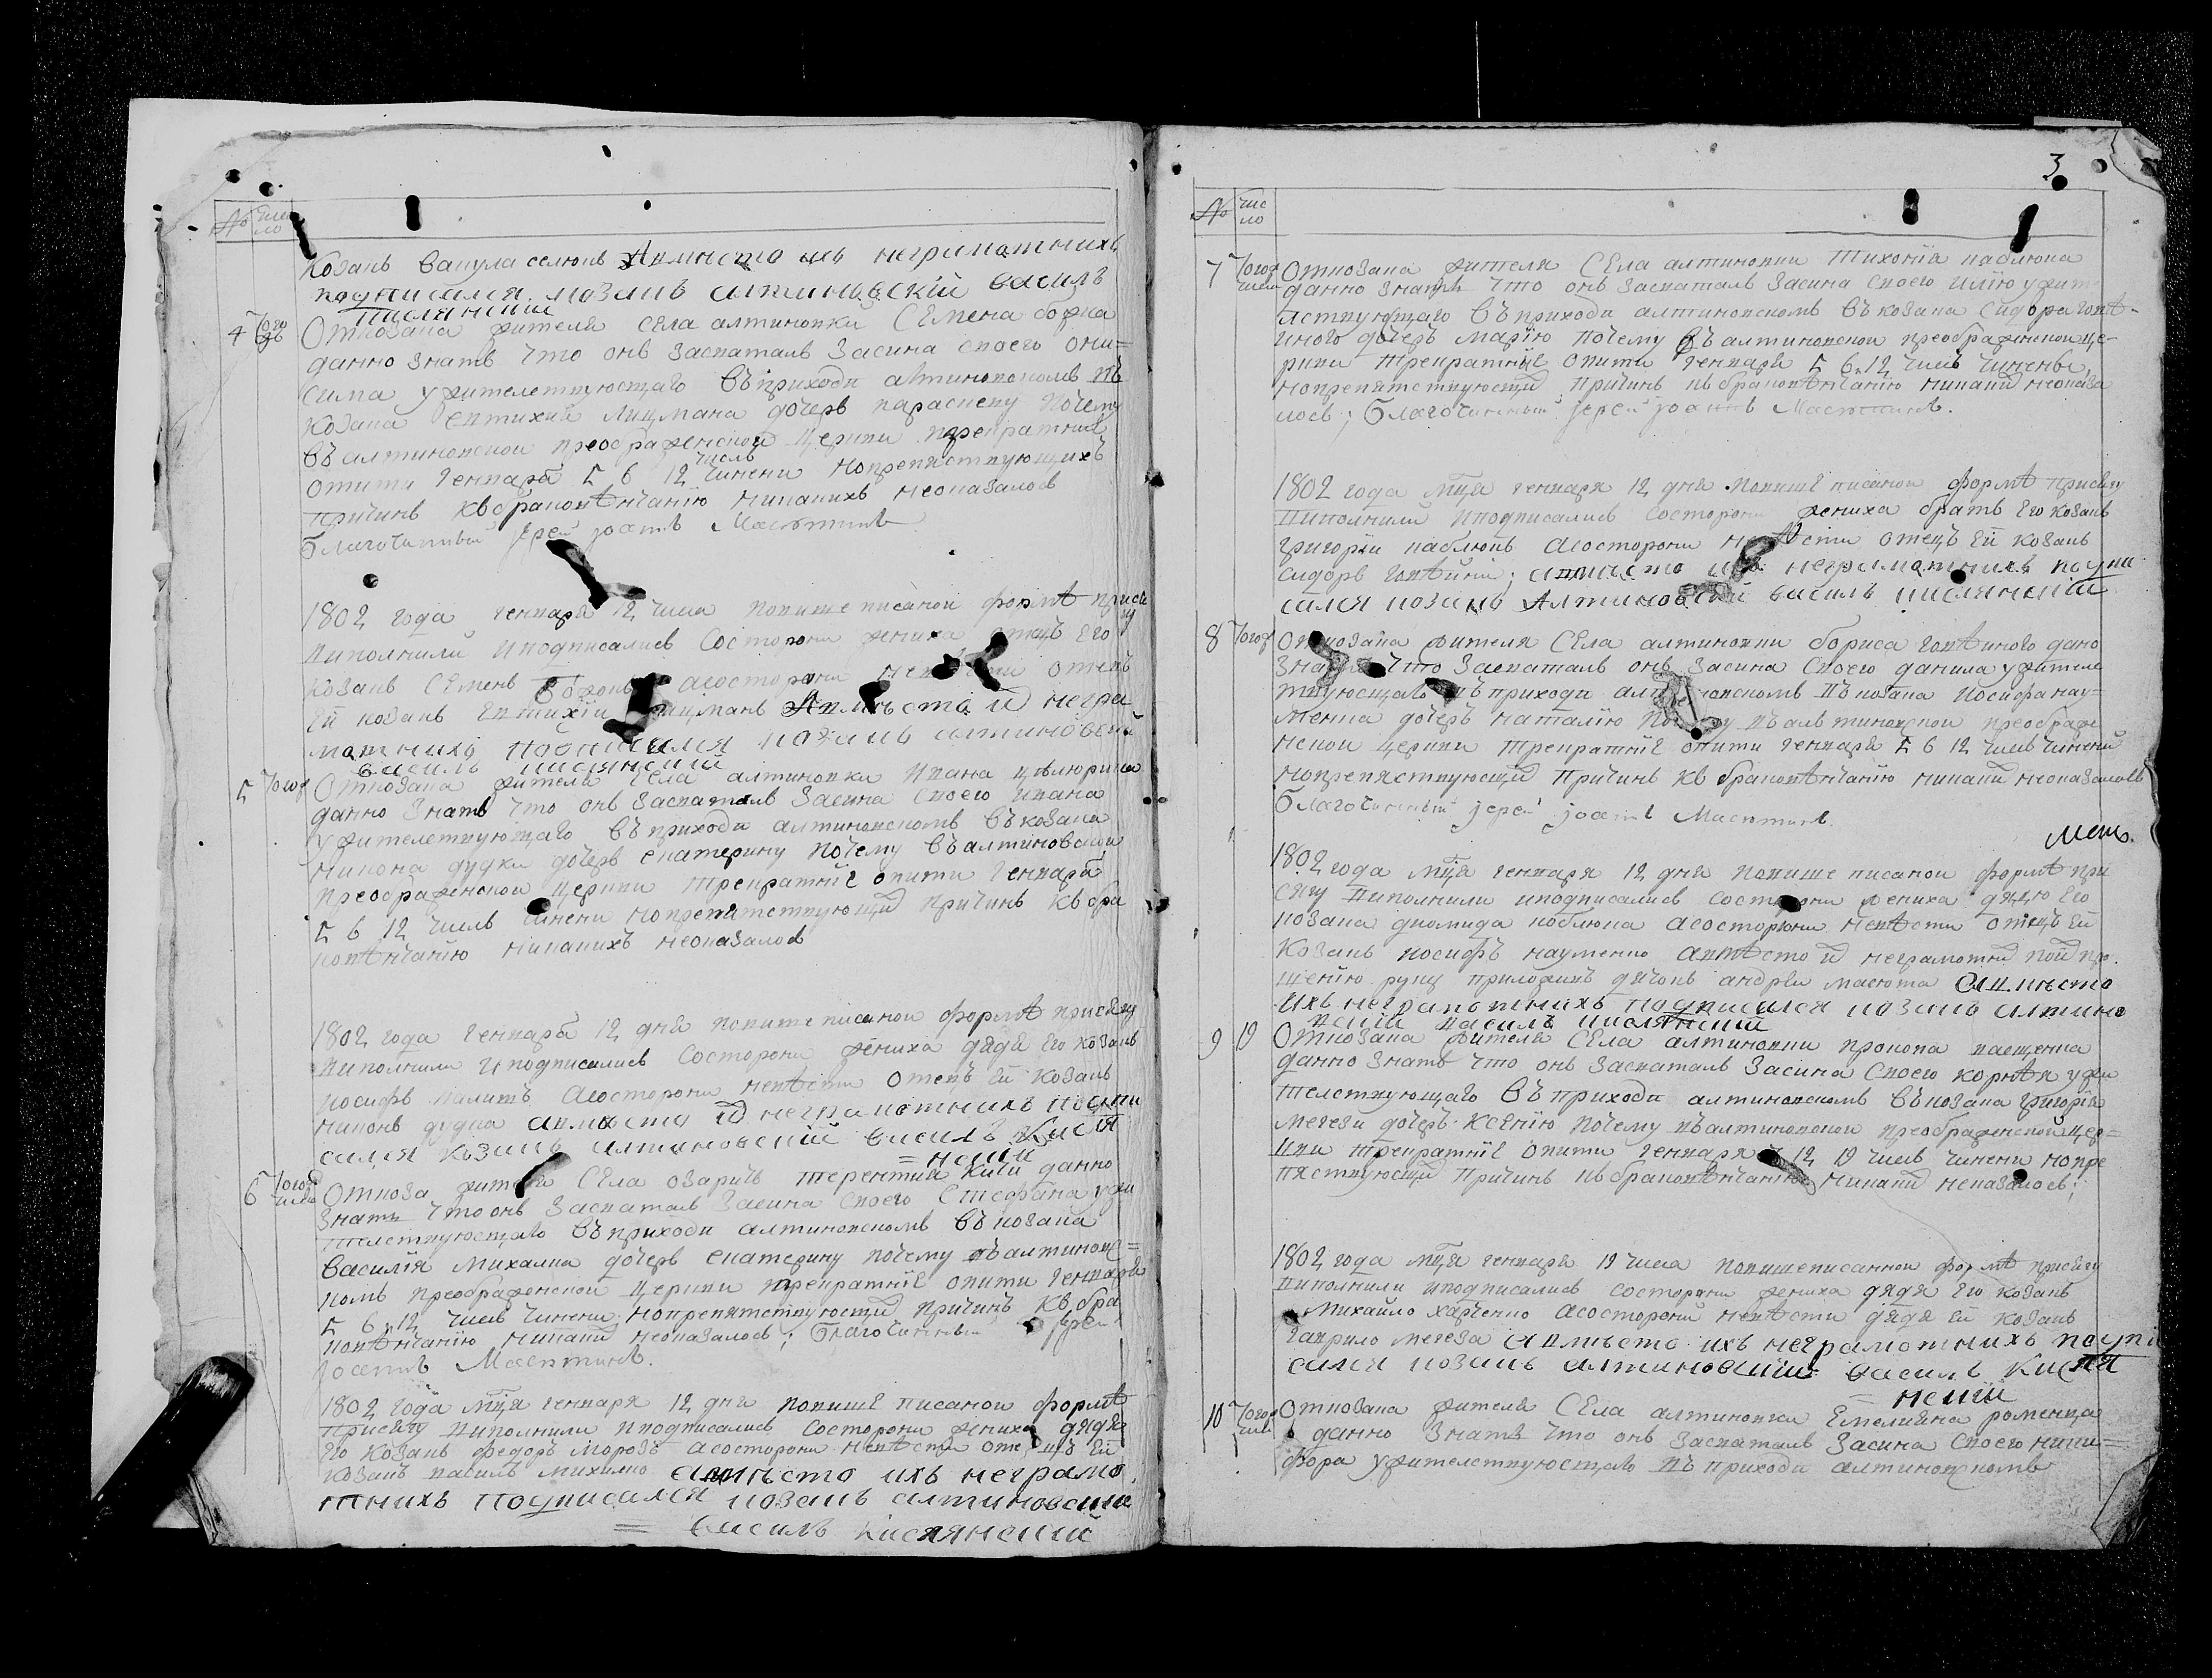 № Чис
ло
Козакъ вакула селюкъ Авмѣсто ихъ неграматнихъ
подписался козакъ алтиновскій василъ
кислянскій
4 Того
жъ Откозака жителя села алтиновки Семена боржа
данно знать что онъ засваталъ засина своего они=
сима ужителствующаго въприходи алтиновскомъ въ
козака евтихия лицмана дочеръ параскеву почему
въалтиновской преображенской церкви троикратние
числъ
опити генваря 5 6 12 чинени нопрепятствующихъ
причинъ кбраковѣнчанію никакихъ неоказалос
благочинный іерей іоаннъ
1802 года генваря 12 числа повише писаной формѣ прися
гу
виполнили иподписались состорони жениха отецъ его
козакъ Семенъ асосторони невѣсти отецъ
ей козакъ евтихїи лицманъ Авмѣсто их негра
матнихъ подписался козакъ алтиновски
василъ кислянскій
5 Тогож Откозака жителя села алтиновки ивана цѣлюрика
данно знать что онъ засваталъ засина своего ивана
ужителствующаго въприходи алтиновскомъ въкозака
никона дудки дочеръ екатерину почему въалтиновской
преображенской церкви троикратнїе опити генваря
5 6 12 числъ чинени нопрепятствующих причинъ кбра
ковѣнчанію никакихъ неоказалос
1802 года генваря 12 дня повише писаной формѣ присягу
виполнили иподписались состорони жениха дядя его козакъ
иосифъ калитъ асосторони невѣсти отецъ ей козакъ
никонъ дудка авмѣсто их неграмотнихъ подпи
сался козакъ алтиновский василъ Кисля
= нский
6 Тогож
числа Откоза жителя села озаричъ терентия кити данно
знать что онъ засваталъ засина своего Стефана ужи
телствующаго въприходи алтиновскомъ въкозака
василїя михалка дочеръ екатерину почему въалтиновс=
комъ преображенской церкви троикратнїе опити генваря
5 6 12 числъ чинени нопрепятствующих причинъ кбра
ковѣнчанію никаких неоказалось; благочинный іерей
іоаннъ
1802 года мця генваря 12 дня повише писаной формѣ
присягу виполнили иподписались состорони жениха дядя
его козакъ федоръ морозъ асосторони невѣсти отецъ ей
козакъ василъ михалко авмѣсто ихъ неграмо
тнихъ подписался козакъ алтиновский
= василъ кислянский
3
№ чис
ло
7 Тогож
числа Откозака жителя Села алтиновки тихонїя паблюка
данно знать что онъ засваталъ засина своего илїю ужит
лствующаго въприходи алтиновскомъ въкозака сидора говѣ-
иного дочеръ марїю почему въалтиновской преображенской це-
ркви троикратнїе опити генваря 5 6 12 числъ чинены,
нопрепятствующих причинъ кбраковѣнчанію никаких неоказа
лось; благочинный іерей іоаннъ
1802 года мця генваря 12 дня повише писаной формѣ присягу
виполнили иподписались состорони жениха братъ его козакъ
григорїи паблюкъ асосторони невѣсти отецъ ей козакъ
сидоръ говѣиний; авмѣсто их неграматнихъ подпи
сался козакъ Алтиновски василъ кислянский
8 Тогож Откозака жителя Села алтиновки бориса говѣиного дано
знать что засваталъ онъ засина своего данила ужителс
твующаго въприходи алтиновскомъ въкозака иосифа нау=
менка дочеръ наталїю почему въалтиновской преображе
нской церкви троикратнїе опити генваря 5 6 12 числъ чинени
нопрепятствующих причинъ кбраковѣнчанію никаких неоказалось
благочинный іерей іоаннъ
1802 года мця генваря 12 дня повише писаной формѣ при
сягу виполнили иподписались состорони жениха дядю его
козака диомида паблюка асосторони невѣсти отецъ ей
козакъ иосифъ науменко авмѣсто их неграмотних поих про
шенію руку приложилъ дячокъ андрей масюта авмѣсто
ихъ неграмотнихъ подписался козакъ алтинов
ский василъ кислянский
9 19 Откозака жителя Села алтиновки прокопа пащенка
данно знать что онъ засваталъ засина своего корнѣя ужи
телствующаго въприходи алтиновскомъ въкозака григорїя
мегези дочеръ ксенїю почему въалтиновской преображенской цер=
кви троикратнїе опити генваря 12 19 числъ чинени нопре
пятствующих причинъ кбраковѣнчанію никаких неказалось;
1802 года мця генваря 19 числа повишеписанной формѣ присягу
виполнили иподписались состорони жениха дядя его козакъ
михайло харченко асосторони невѣсти дядя ей козакъ
гаврило мегеза авмѣсто ихъ неграмотнихъ подпи
сался козакъ алтиновский василъ Кисля
= нский
10 Тогож
числа Откозака жителя Села алтиновки Емелияна роменца
данно знать что онъ засваталъ засина своего ники=
фора ужителствующаго въприходи алтиновскомъ